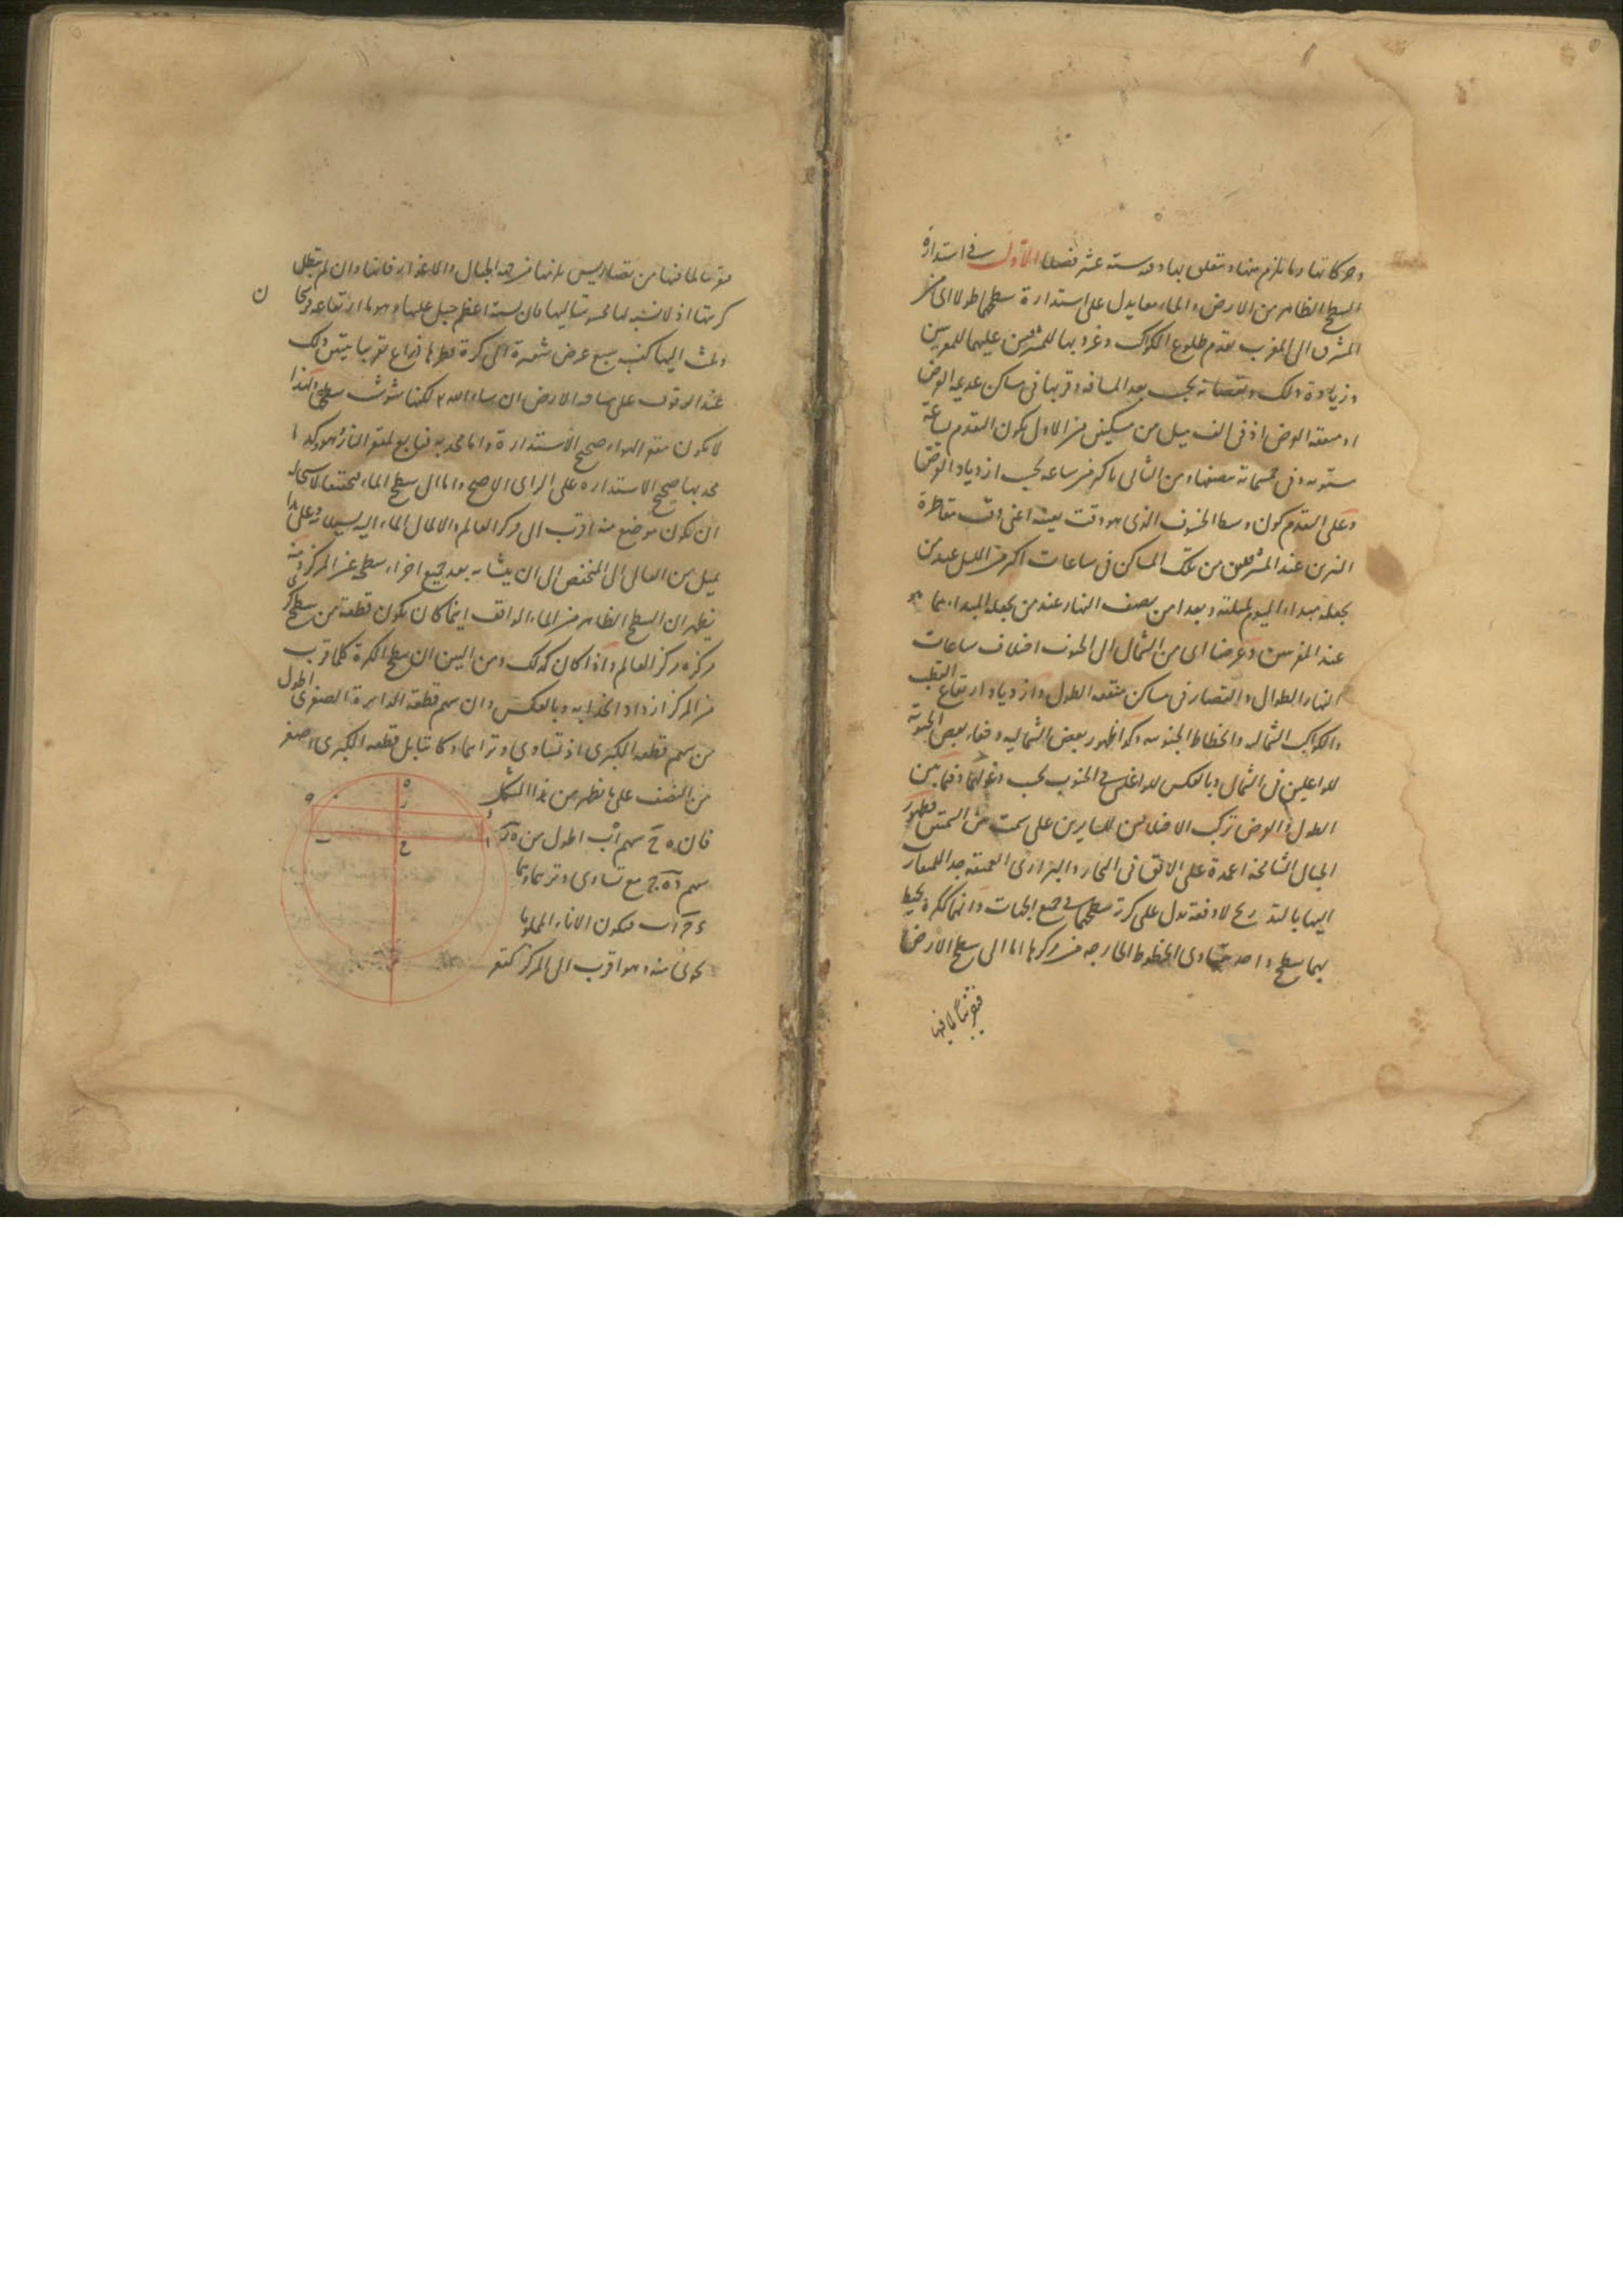 وحركاتها وما يلزم منها ويتعلق بها وفيه ستة عشر فصلا الاول في استدارة
السطح الظاهر من الارض والماء مما يدل على استدارة سطحهما طولا اى من
المشرق الى المغرب تقدم طلوع الكواكب وغروبها للمشرقيين عليهما للمغربيين
وزيادة ذلك ونقصانه بحسب بعد المسافة وقربها فى مساكن عديمة العرض
او متفقة العرض اذ فى الف ميل من مسكنين من الاول يكون التقدم بساعة
مستوية وفى خمسمائة بنصفها ومن الثانى باكثر من ساعة بحسب ازدياد العرض
وعلى التقدم كون وسط الخسوف الذى هو وقت بعينه اعنى وقت مقاطرة
النيرين عند المشرقيين من تلك المساكن فى ساعات اكثر من الليل عند من
يجعله مبداء اليوم بليلته وبعدا من نصف النهار عند من يجعله المبداء مما هو
عند المغربيين وعرضا اى من الشمال الى الجنوب اختلاف ساعات
النهار الطوال والقصار فى مساكن متفقة الطول وازدياد ارتفاع القطب
والكواكب الشمالية وانحطاط الجنوبية وكذا ظهور بعض الشمالية وخفاء بعض الجنوبية
للواغلين فى الشمال وبالعكس للواغلين فى الجنوب بحسب وغولهما وفيما بين
الطول والعرض تركب الاختلافين للسايرين على سمت بين السمتين فظهور
الجبال الشامخة اعمدة على الافق فى البحار والبرارى العميقة جدا للسفار
اليها بالتدريج لا دفعة يدل على كرية سطحهما فى جميع الجهات وانهما ككرة يحيط
بهما سطح واحد يتساوى الخطوط الخارجة من مركزها اما الى سطح الارض
فتقريبا لما فيها
فتقريبا لما فيها من تضاريس يلزمها من جهة الجبال والاغوار فانها وان لم تبطل
كريتها اذ لا نسبة لها محسوسة اليها فان نسبة اعظم جبل عليها وهو ما ارتفاعه فرسخان
وثلث اليها كنسبة سبع عرض شعيرة الى كرة قطرها ذراع تقريبا يتبين ذلك
عند الوقوف على مساحة الارض ان شاء الله تعالى لكنها شوشت سطحها ولهذا
لا يكون مقعر الهواء صحيح الاستدارة واما محدبه فتابع لمقعر النار وهو وكذا
محدبها صحيح الاستدارة على الراى الاصح واما الى سطح الماء فتحقيقا لاستحالة
ان يكون موضع منه اقرب الى مركز العالم والا لمال الماء اليه بسيلانه وعلى هذا
يميل من العالى الى المنخفض الى ان يتشابه بعد جميع اجزاء سطحه عن المركز ومنه
يظهر ان السطح الظاهر من الماء الواقف اينما كان يكون قطعة من سطح كرى
مركزه مركز العالم واذا كان كذلك ومن البين ان سطح الكرة كلما قرب
من المركز ازداد انحدابه وبالعكس وان سهم قطعة الدايرة الصغرى اطول
من سهم قطعة الكبرى اذ تساوى وتراهما وكانت قطعة الكبرى اصغر
من النصف على ما يظهر من هذا الشكل
فان ه ح سهم اب اطول من ه ز
سهم د ه ج مع تساوى وتريهما وهما
د ج اب فيكون الاناء المملو ما
يحوى منه وهو اقرب الى المركز كقعر